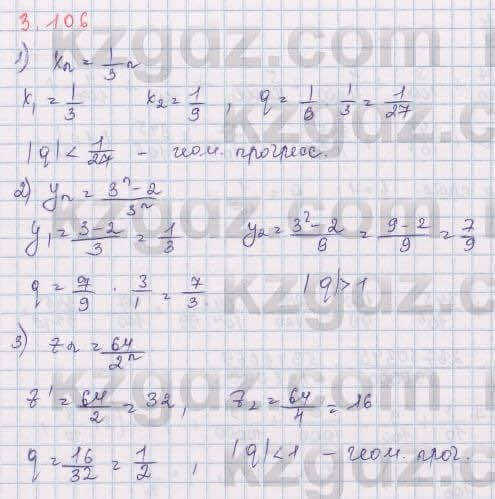 3.106
1) xₙ = 1/3ⁿ
x₁ = 1/3 x₂ = 1/9 , q = 1/9 · 1/3 = 1/27
|q| < 1/27 - геом. прогресс.
2) yₙ = (3ⁿ - 2)/3ⁿ
y₁ = (3-2)/3 = 1/3 y₂ = (3² - 2)/9 = (9-2)/9 = 7/9
q = 7/9 · 3/1 = 7/3 |q| > 1
3) zₙ = 64/2ⁿ
z¹ = 64/2 = 32, z₂ = 64/4 = 16
q = 16/32 = 1/2 , |q| < 1 - геом. прог.
kzgdz.com